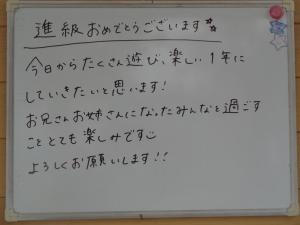 進級おめでとうございます
今日からたくさん遊び、楽しい1年に
していきたいと思います!
お兄さんお姉さんになったみんなと過ごす
こととても楽しみです
よろしくお願いします!!